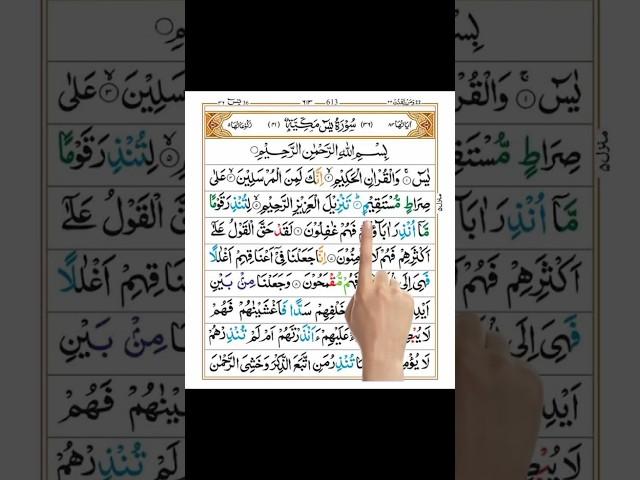 سُوْرَةُ يٰسٓ مَكِّيَّةٌ
بِسْمِ اللهِ الرَّحْمٰنِ الرَّحِيْمِ
يٰسٓ ۚ وَالْقُرْاٰنِ الْحَكِيْمِ ۙ اِنَّكَ لَمِنَ الْمُرْسَلِيْنَ ۙ عَلٰى
صِرَاطٍ مُّسْتَقِيْمٍ ؕ تَنْزِيْلَ الْعَزِيْزِ الرَّحِيْمِ ۙ لِتُنْذِرَ قَوْمًا
مَّاۤ اُنْذِرَ اٰبَآؤُ فَهُمْ غٰفِلُوْنَ لَقَدْ حَقَّ الْقَوْلُ عَلٰۤى
اَكْثَرِهِمْ فَهُمْ لَا مِنُوْنَ اِنَّا جَعَلْنَا فِيْۤ اَعْنَاقِهِمْ اَغْلٰلًا
فَهِيَ اِلَى فَهُمْ مُّقْمَحُوْنَ وَجَعَلْنَا مِنْۢ بَيْنِ
اَيْدِ خَلْفِهِمْ سَدًّا فَاَغْشَيْنٰهُمْ فَهُمْ
لَا يُبْصِ عَلَيْهِمْ ءَاَنْذَرْتَهُمْ اَمْ لَمْ تُنْذِرْهُمْ
لَا يُؤْمِ تُنْذِرُ مَنِ اتَّبَعَ الذِّكْرَ وَخَشِيَ الرَّحْمٰنَ